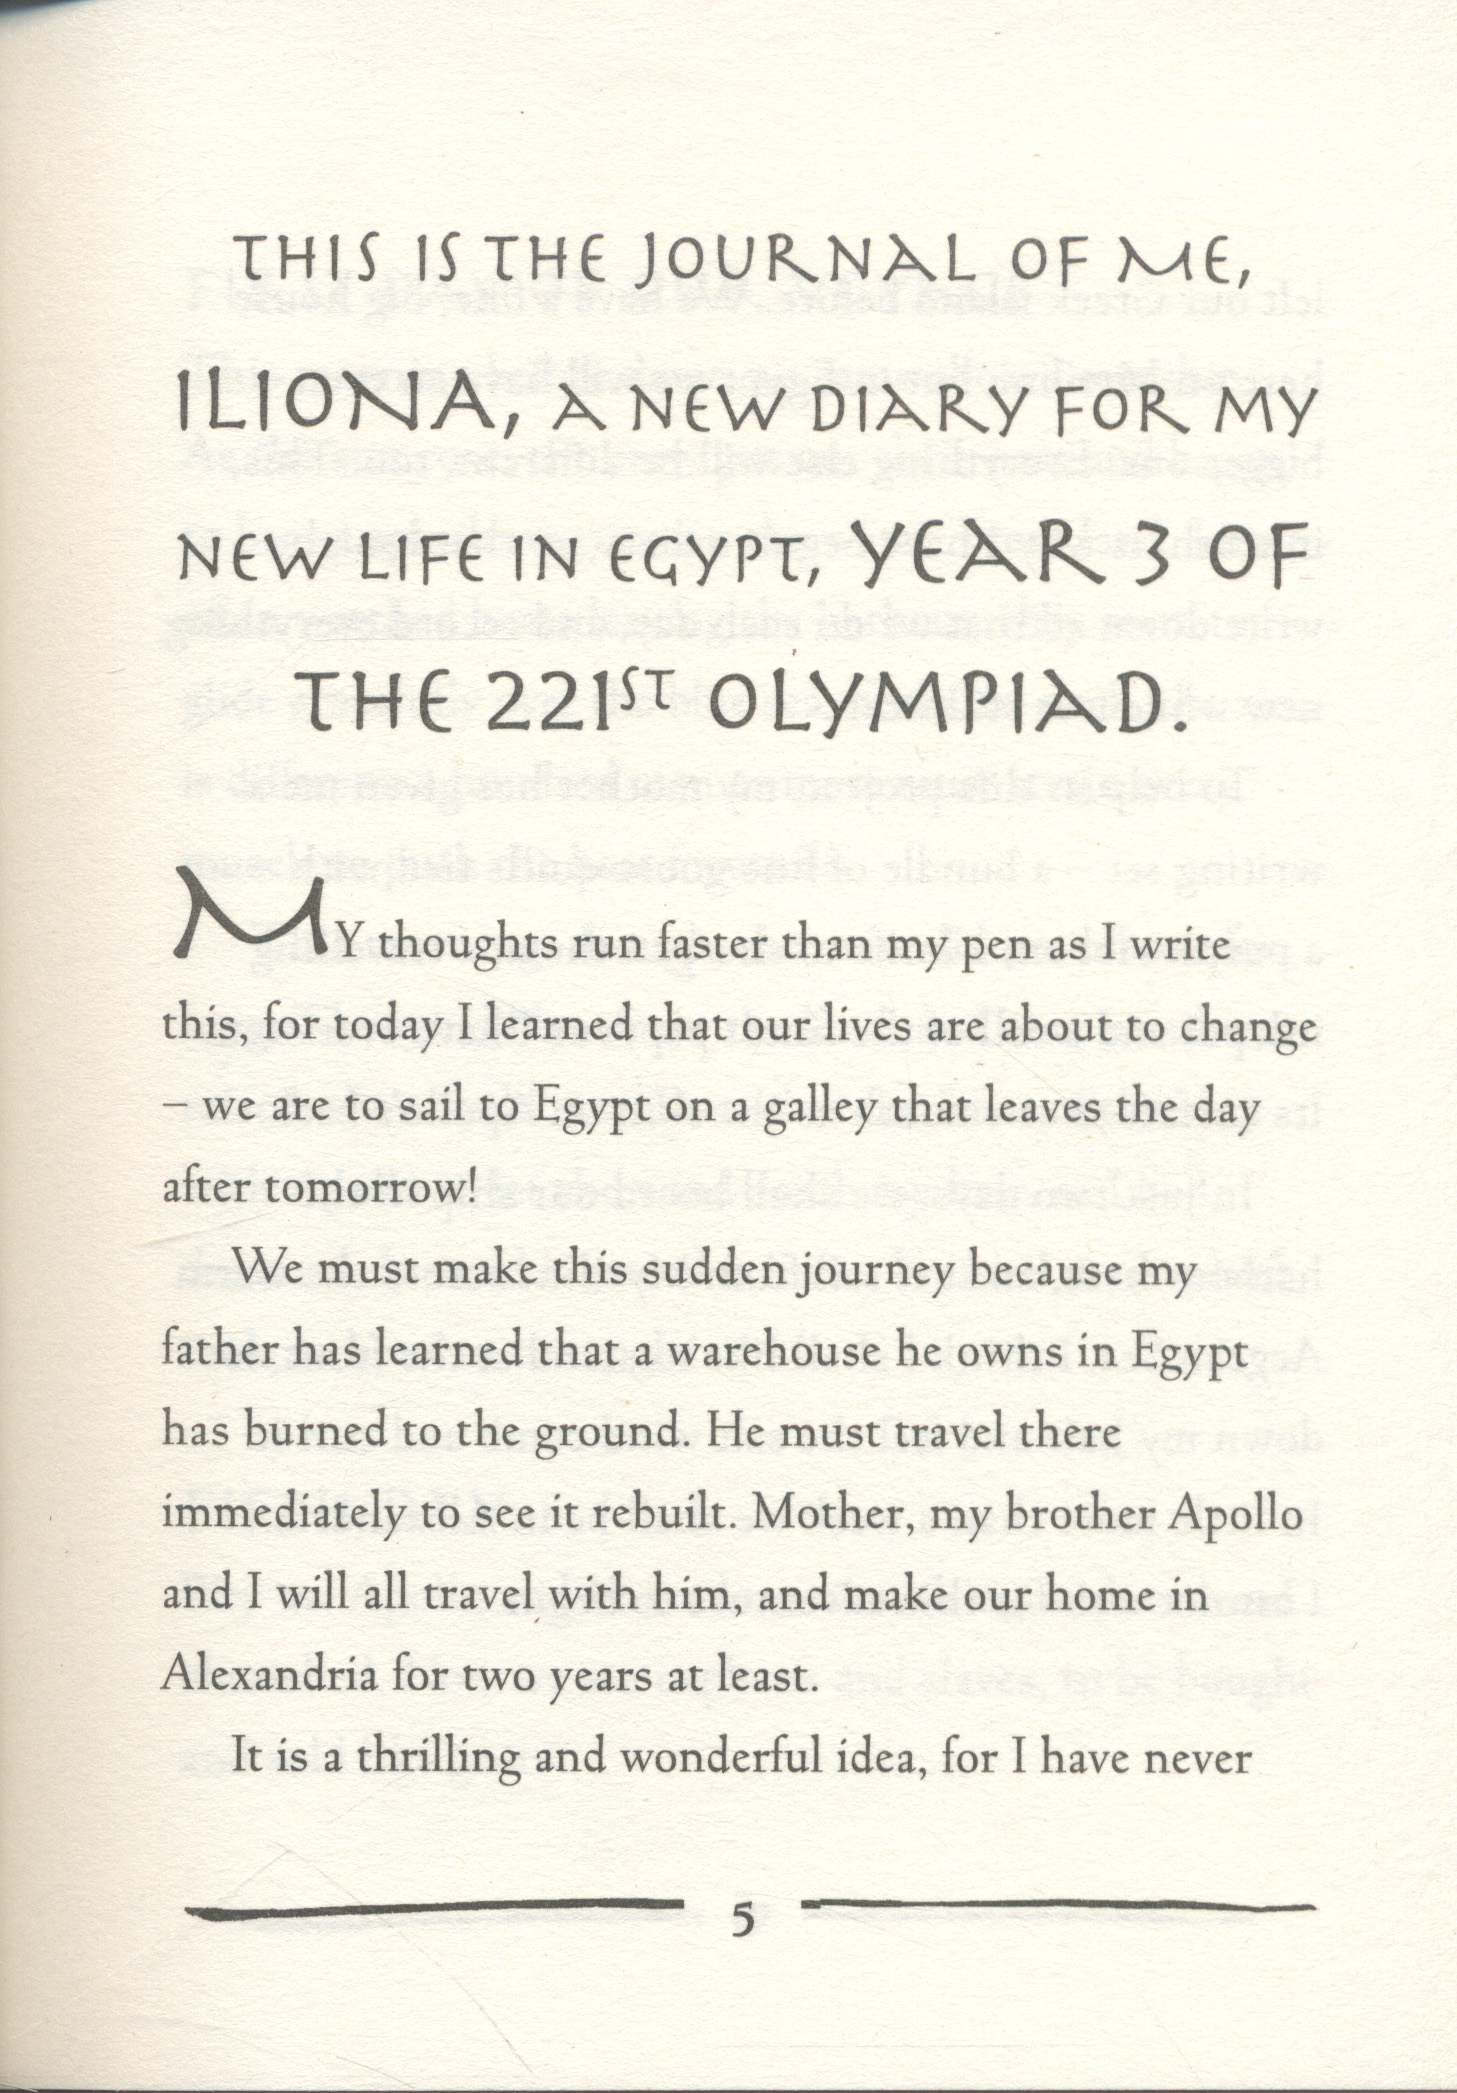 THIS IS THE JOURNAL OF ME,
ILIONA, A NEW DIARY FOR MY
NEW LIFE IN EGYPT, YEAR 3 OF
THE 221ST OLYMPIAD.
MY thoughts run faster than my pen as I write
this, for today I learned that our lives are about to change
– we are to sail to Egypt on a galley that leaves the day
after tomorrow!
We must make this sudden journey because my
father has learned that a warehouse he owns in Egypt
has burned to the ground. He must travel there
immediately to see it rebuilt. Mother, my brother Apollo
and I will all travel with him, and make our home in
Alexandria for two years at least.
It is a thrilling and wonderful idea, for I have never
5